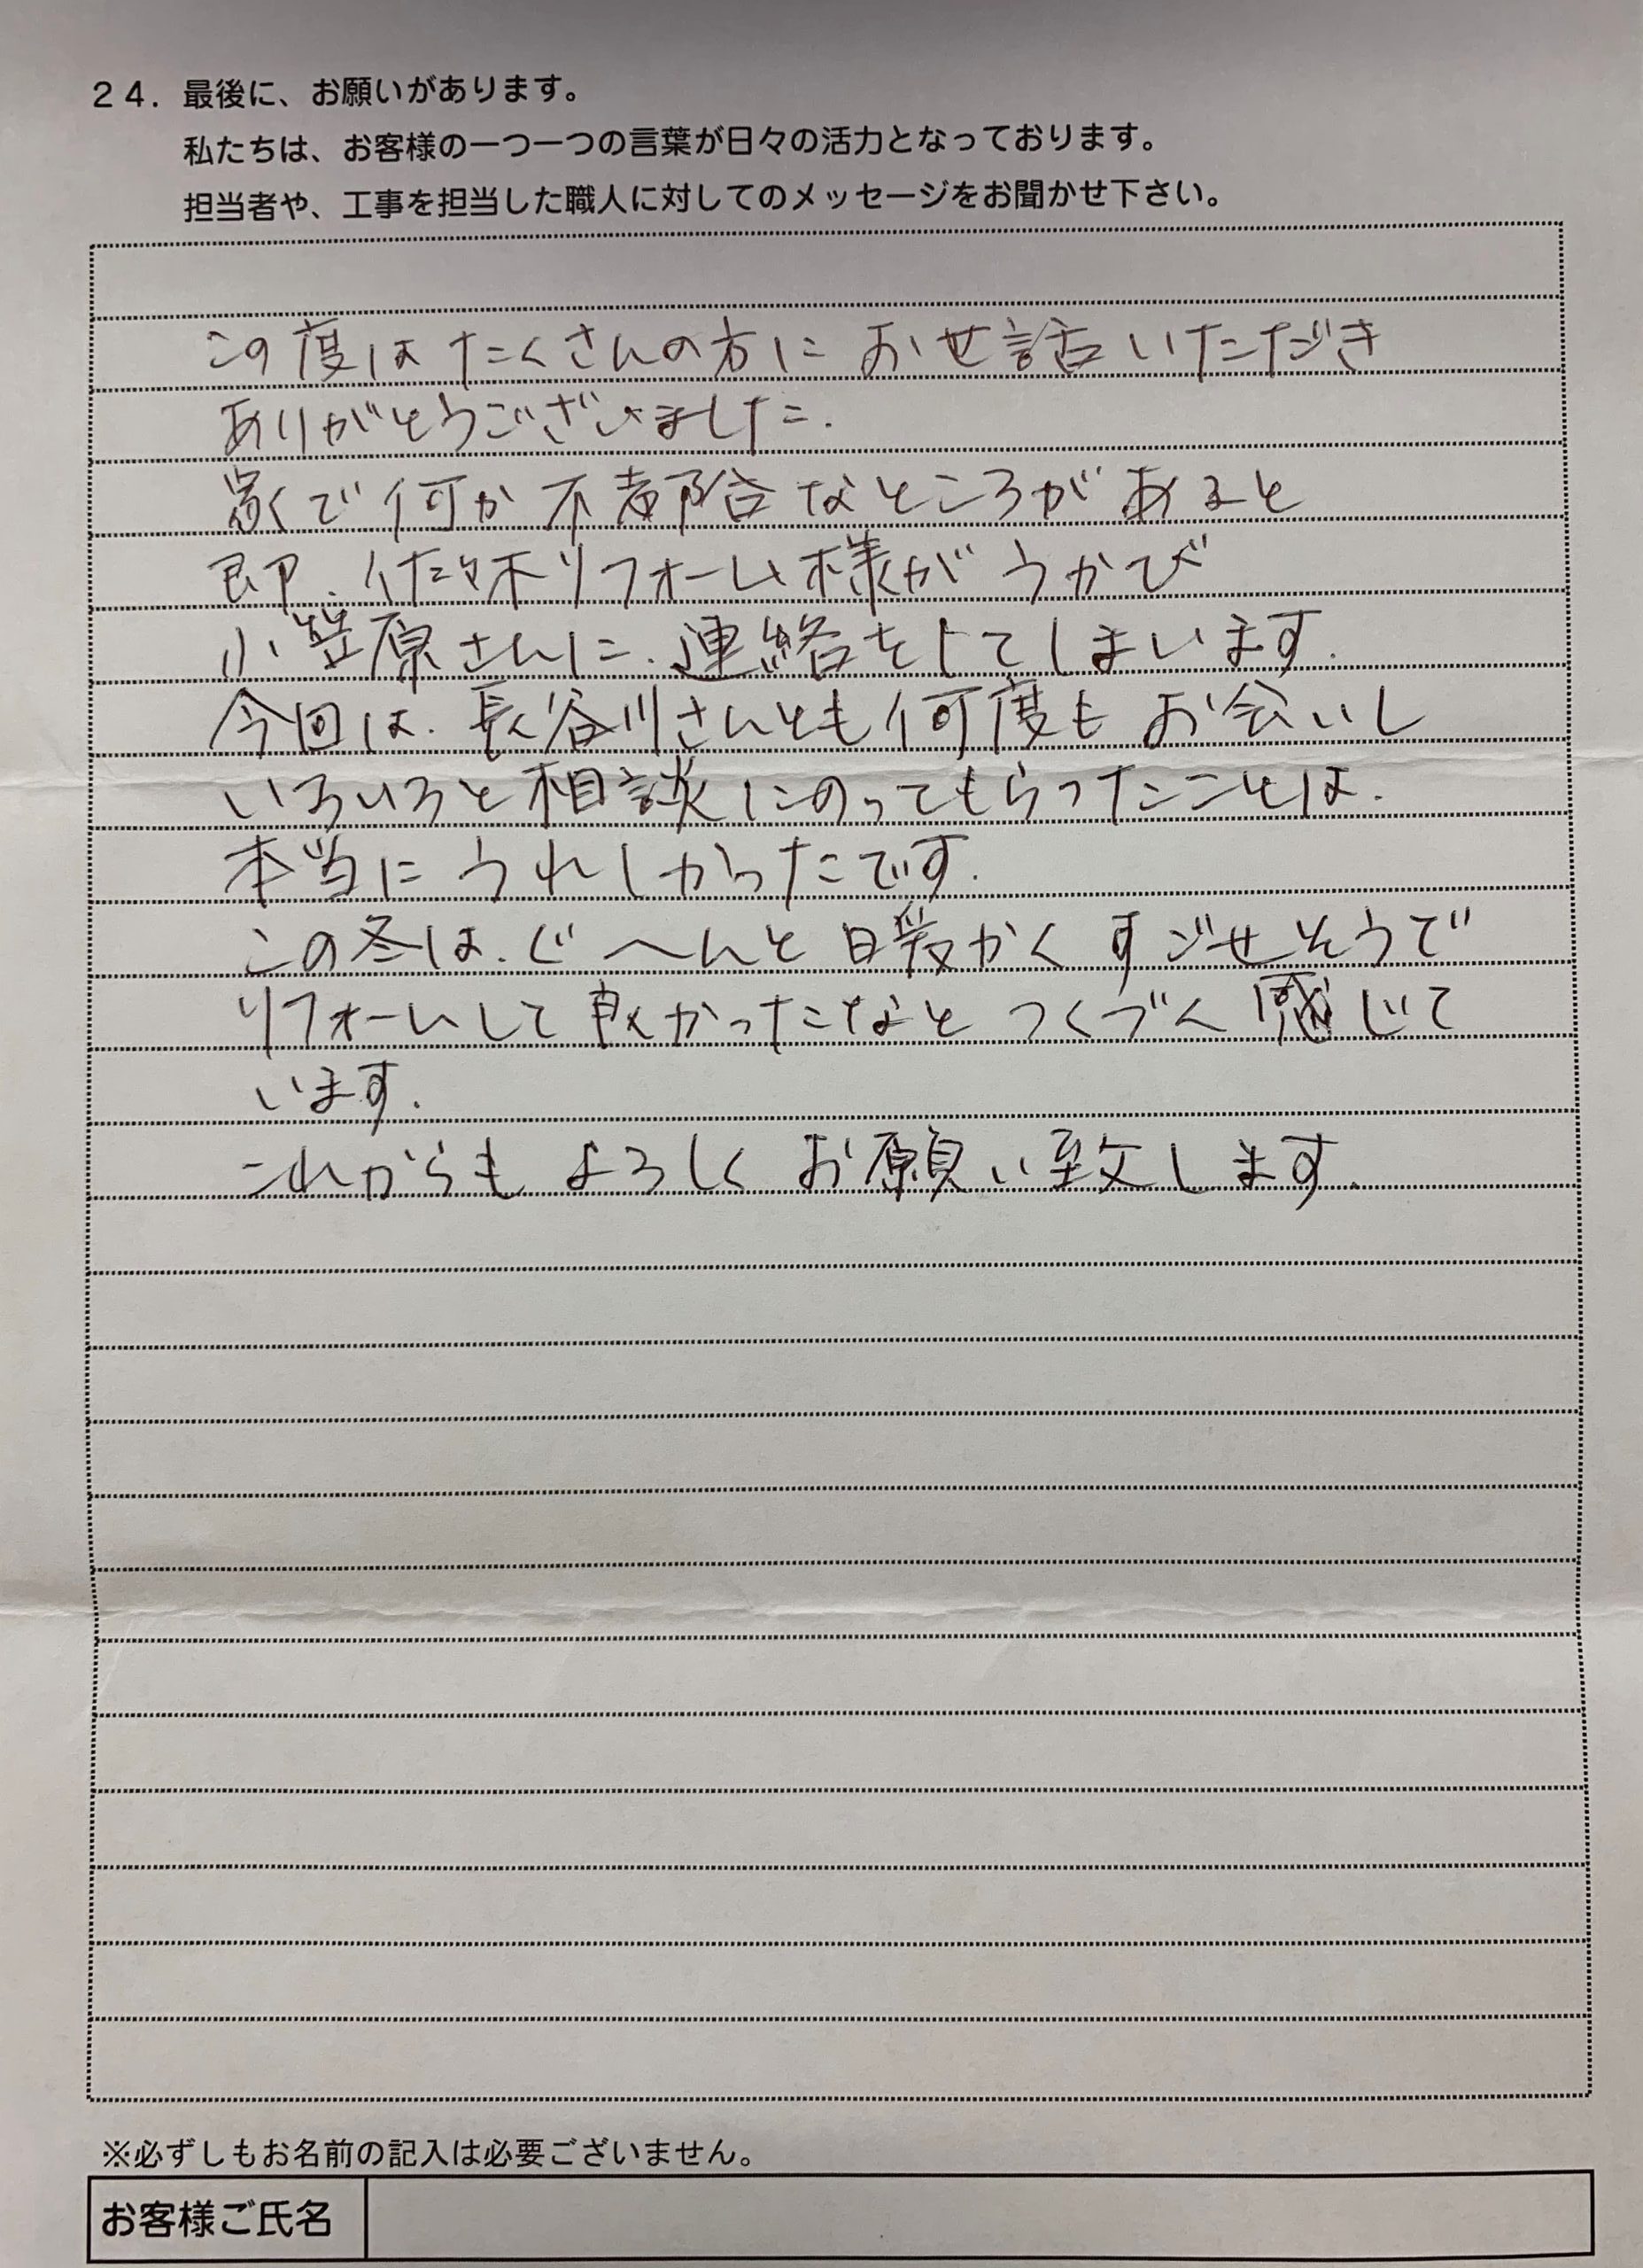 24. 最後に、お願いがあります。
私たちは、お客様の一つ一つの言葉が日々の活力となっております。
担当者や、工事を担当した職人に対してのメッセージをお聞かせ下さい。
この度はたくさんの方におせ話いただき
ありがとうございました.
家で何か不都合なところがあると
即.佐々木リフォーム様がうかび
小笠原さんに.連絡をしてしまいます.
今回は.長谷川さんとも何度もお会いし
いろいろと相談にのってもらったことは.
本当にうれしかったです.
この冬は.ぐーんと暖かくすごせそうで
リフォームして良かったなとつくづく感じて
います.
これからもよろしくお願い致します.
※必ずしもお名前の記入は必要ございません。
お客様ご氏名